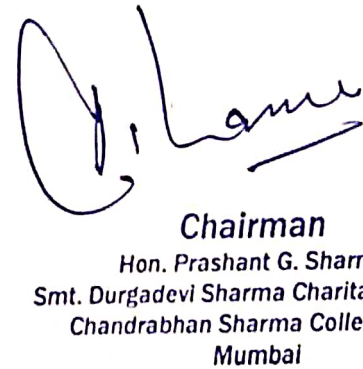 Chairman
Hon. Prashant G. Sharm
Smt. Durgadevi Sharma Charita
Chandrabhan Sharma Colle
Mumbai